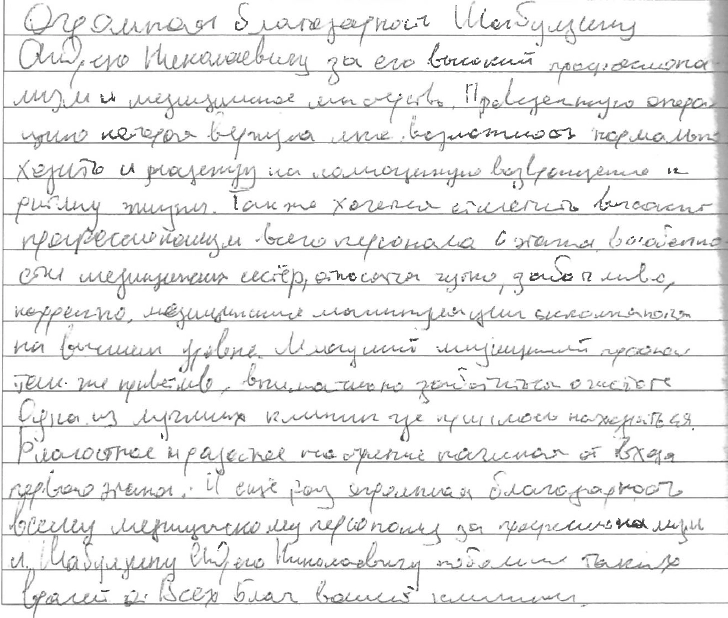 Огромная благодарность Шабулдину
Андрею Николаевичу за его высокий профессиона-
лизм и медицинское мастерство. Проведенную опера-
цию которая вернула мне возможность нормально
ходить и надежду на полноценную возвращение к
ритму жизни. Также хочется отметить высокий
профессионализм всего персонала 6 этажа, в особенно-
сти медицинских сестёр, относятся чутко, заботливо,
корректно, медицинские манипуляции выполняются
на высшем уровне. Младший медицинский персонал
так же приветливо, внимательно заботиться о чистоте
Одна из лучших клиник где пришлось находиться.
Радостное настроение начиная от входа
первого этажа. И ещё раз огромная благодарность
всему медицинскому персоналу за профессионализм
и Шабулдину Андрею Николаевичу побольше таких
врачей. Всех благ вашей клинике.